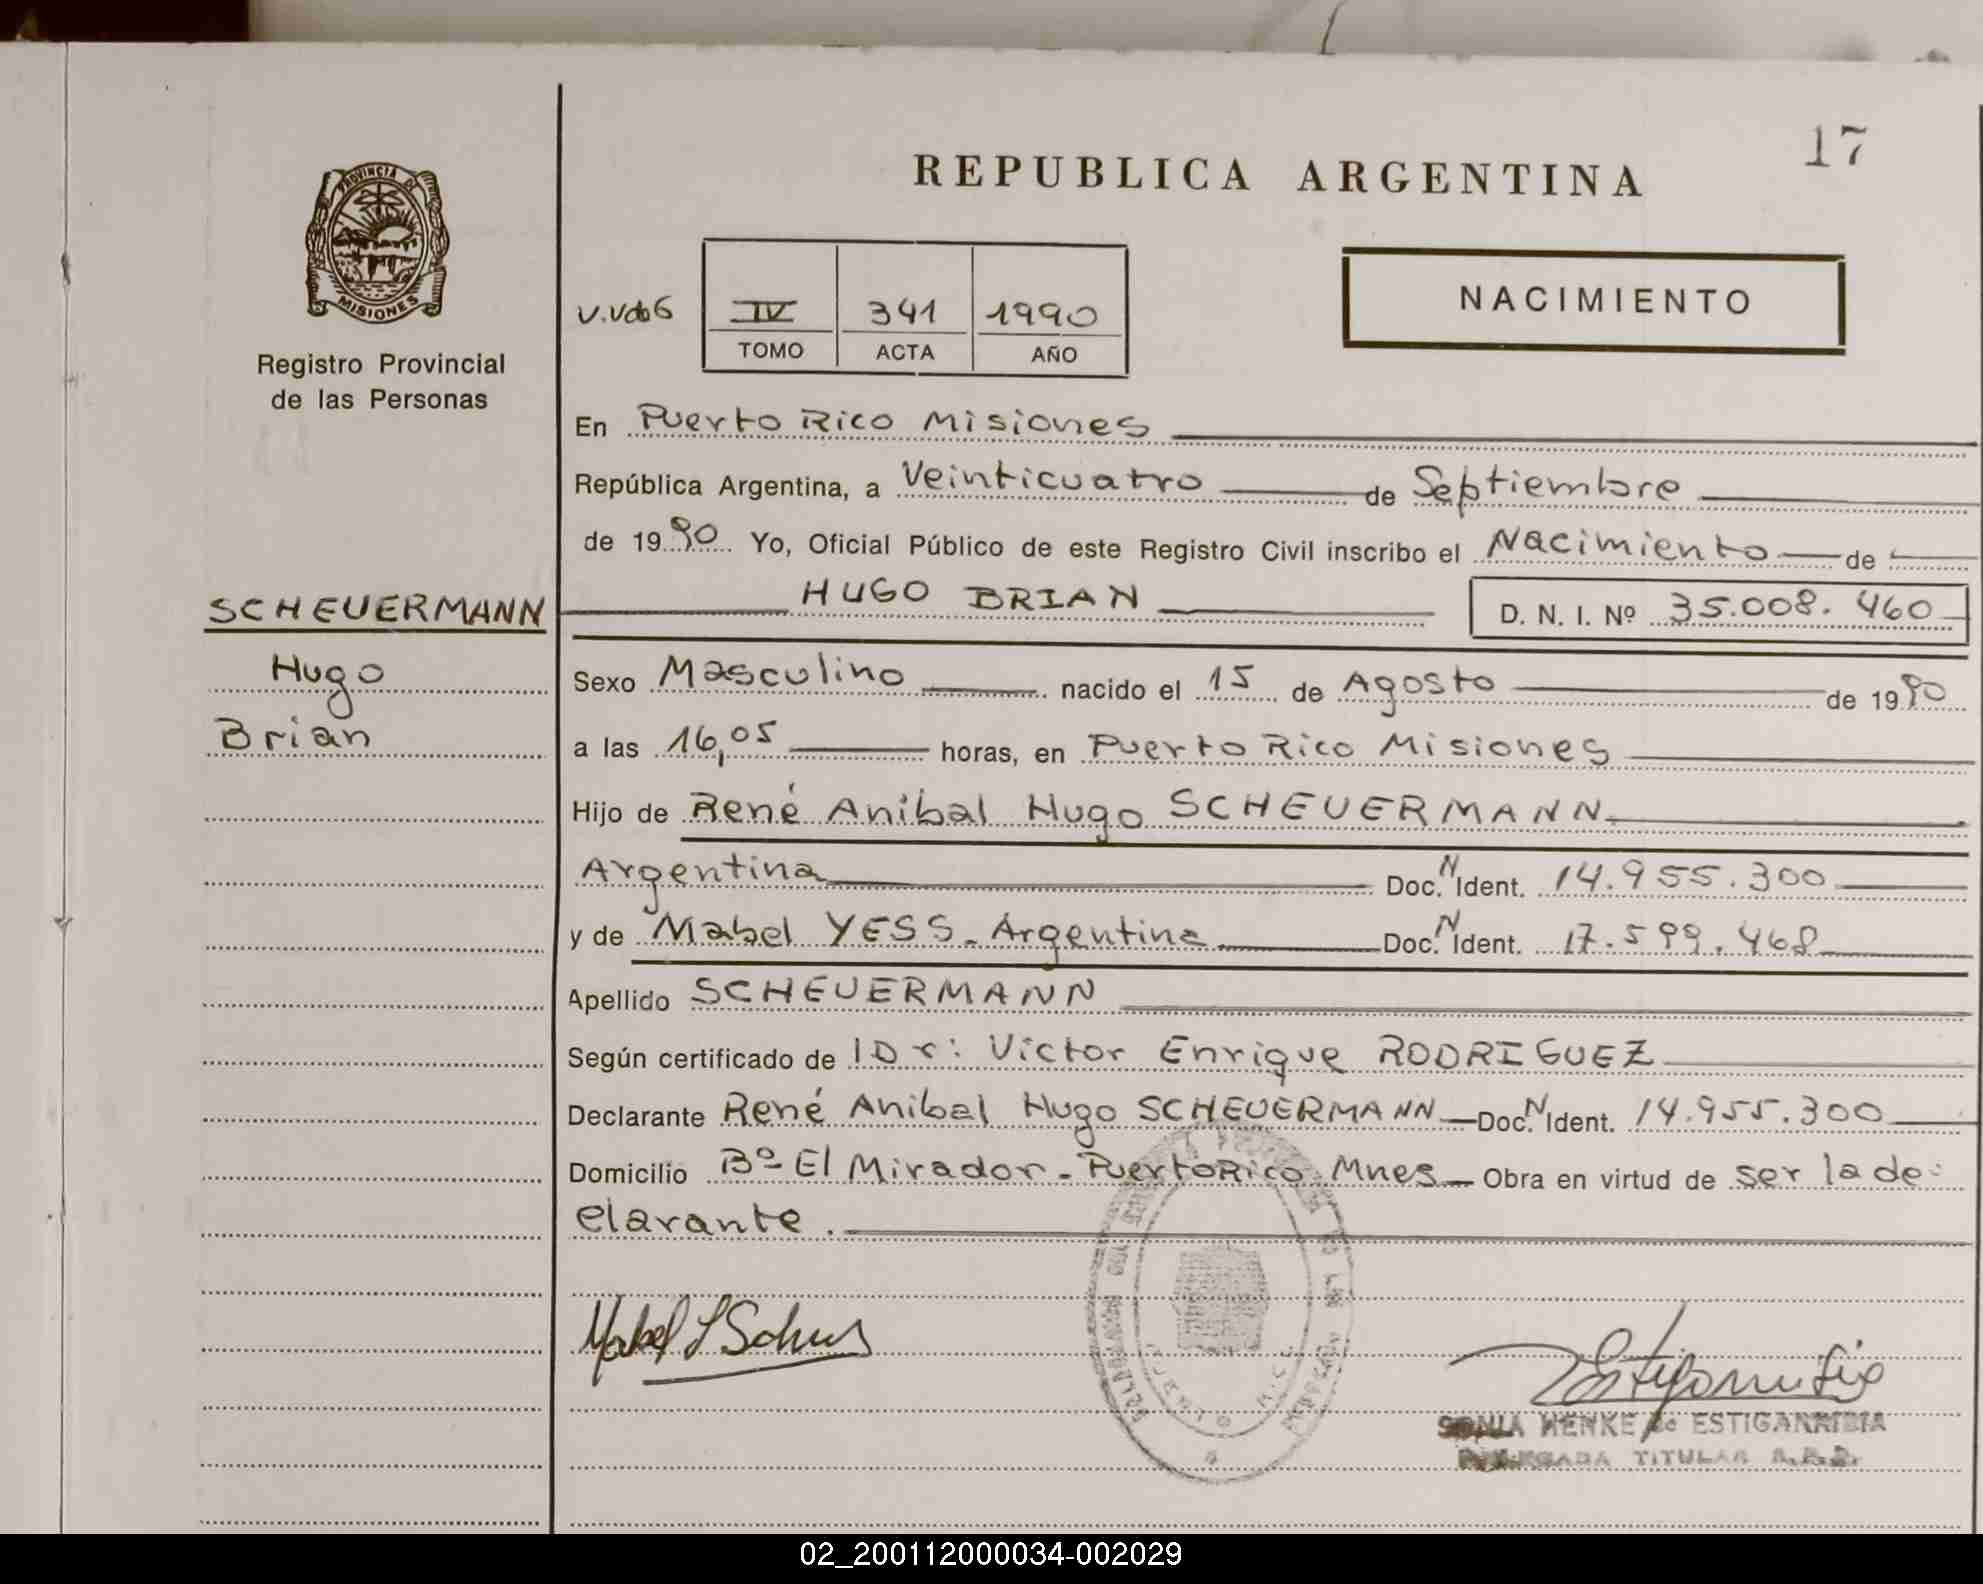 17
REPUBLICA ARGENTINA
PROVINCIA DE
MISIONES
Registro Provincial
de las Personas
NACIMIENTO
IV 341 1990
TOMO ACTA AÑO
En Puerto Rico Misiones
República Argentina, a Veinticuatro de Septiembre
de 1990 Yo, Oficial Público de este Registro Civil inscribo el Nacimiento de
SCHEUERMANN HUGO BRIAN D. N. I. Nº 35.008.460
Hugo
Brian
Sexo Masculino nacido el 15 de Agosto de 1990
a las 16,05 horas, en Puerto Rico Misiones
Hijo de René Anibal Hugo SCHEUERMANN
Argentina Doc. N Ident. 14.955.300
y de Mabel YESS - Argentina Doc. N Ident. 17.599.468
Apellido SCHEUERMANN
Según certificado de Dr: Victor Enrique RODRIGUEZ
Declarante René Anibal Hugo SCHEUERMANN Doc. N Ident. 14.955.300
Domicilio Bº El Mirador - Puerto Rico Mnes - Obra en virtud de ser la de-
clarante.
SONIA HENKE de ESTIGARRIBIA
DELEGADA TITULAR
02_200112000034-002029